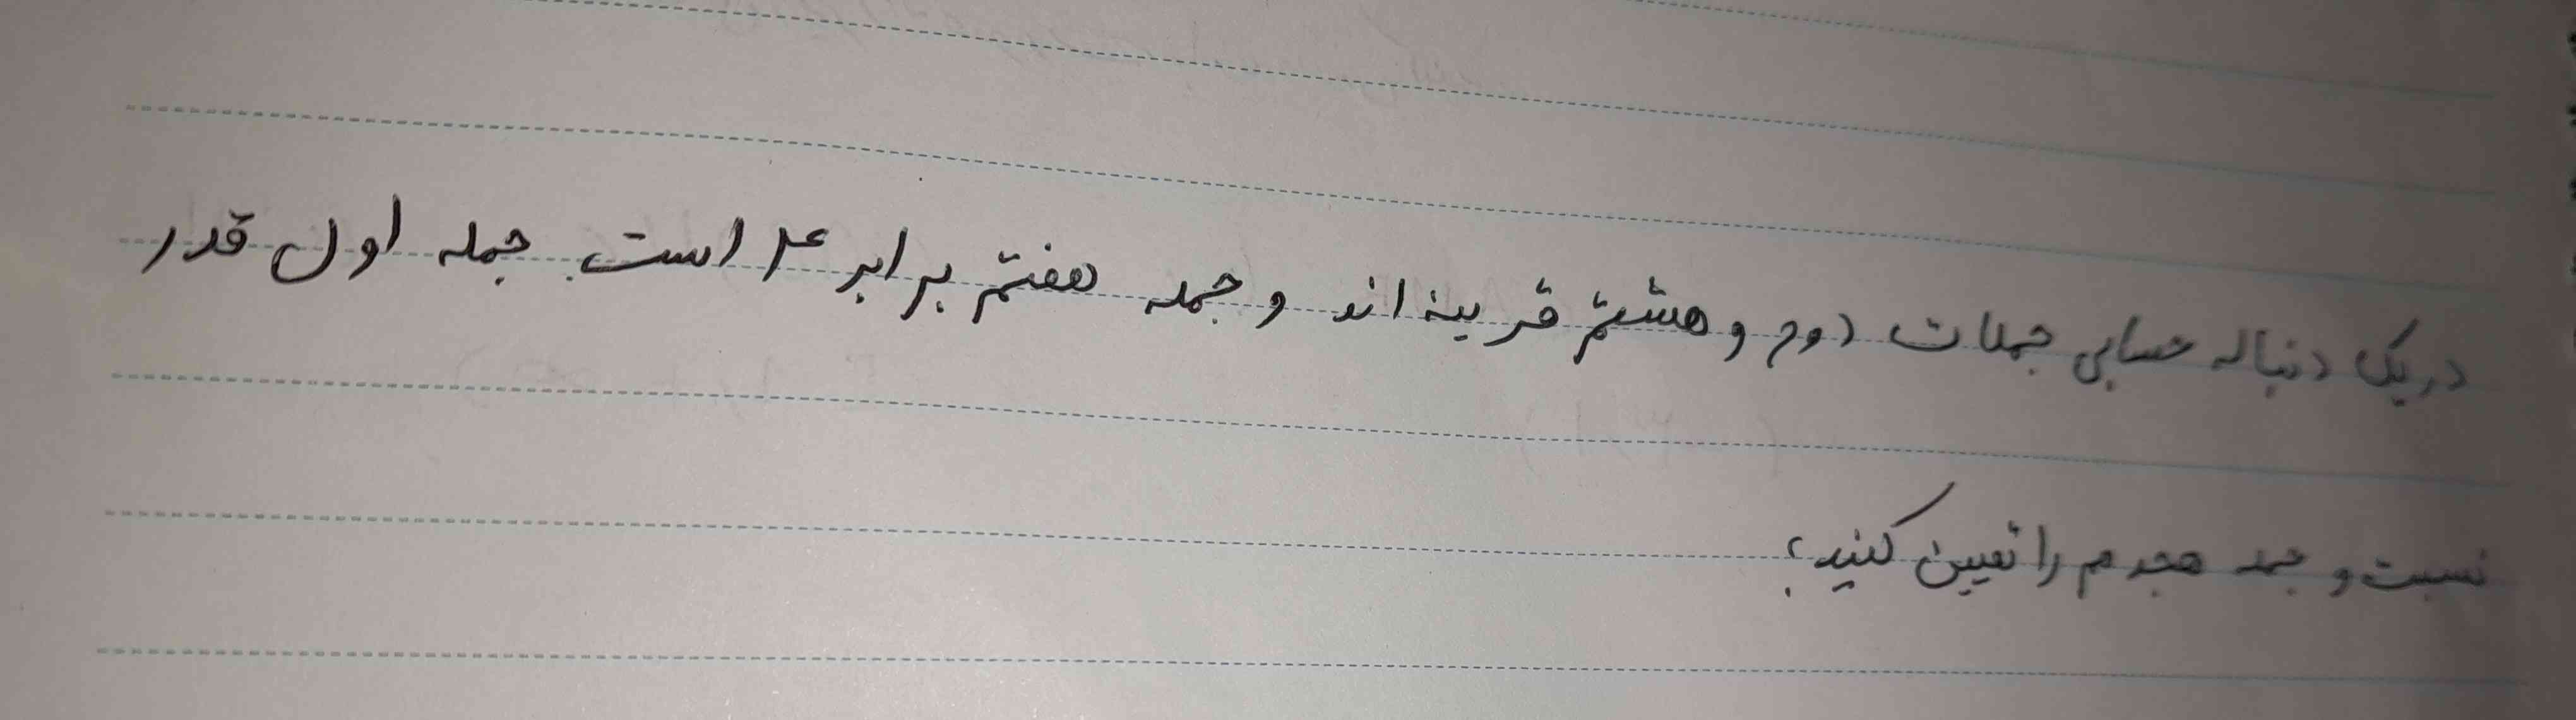 در یک دنباله حسابی جملات دوم و هشتم قرینه اند و جمله هفتم برابر ۲۴ است. جمله اول قدر
نسبت و جمله هجدم را تعیین کنید؟